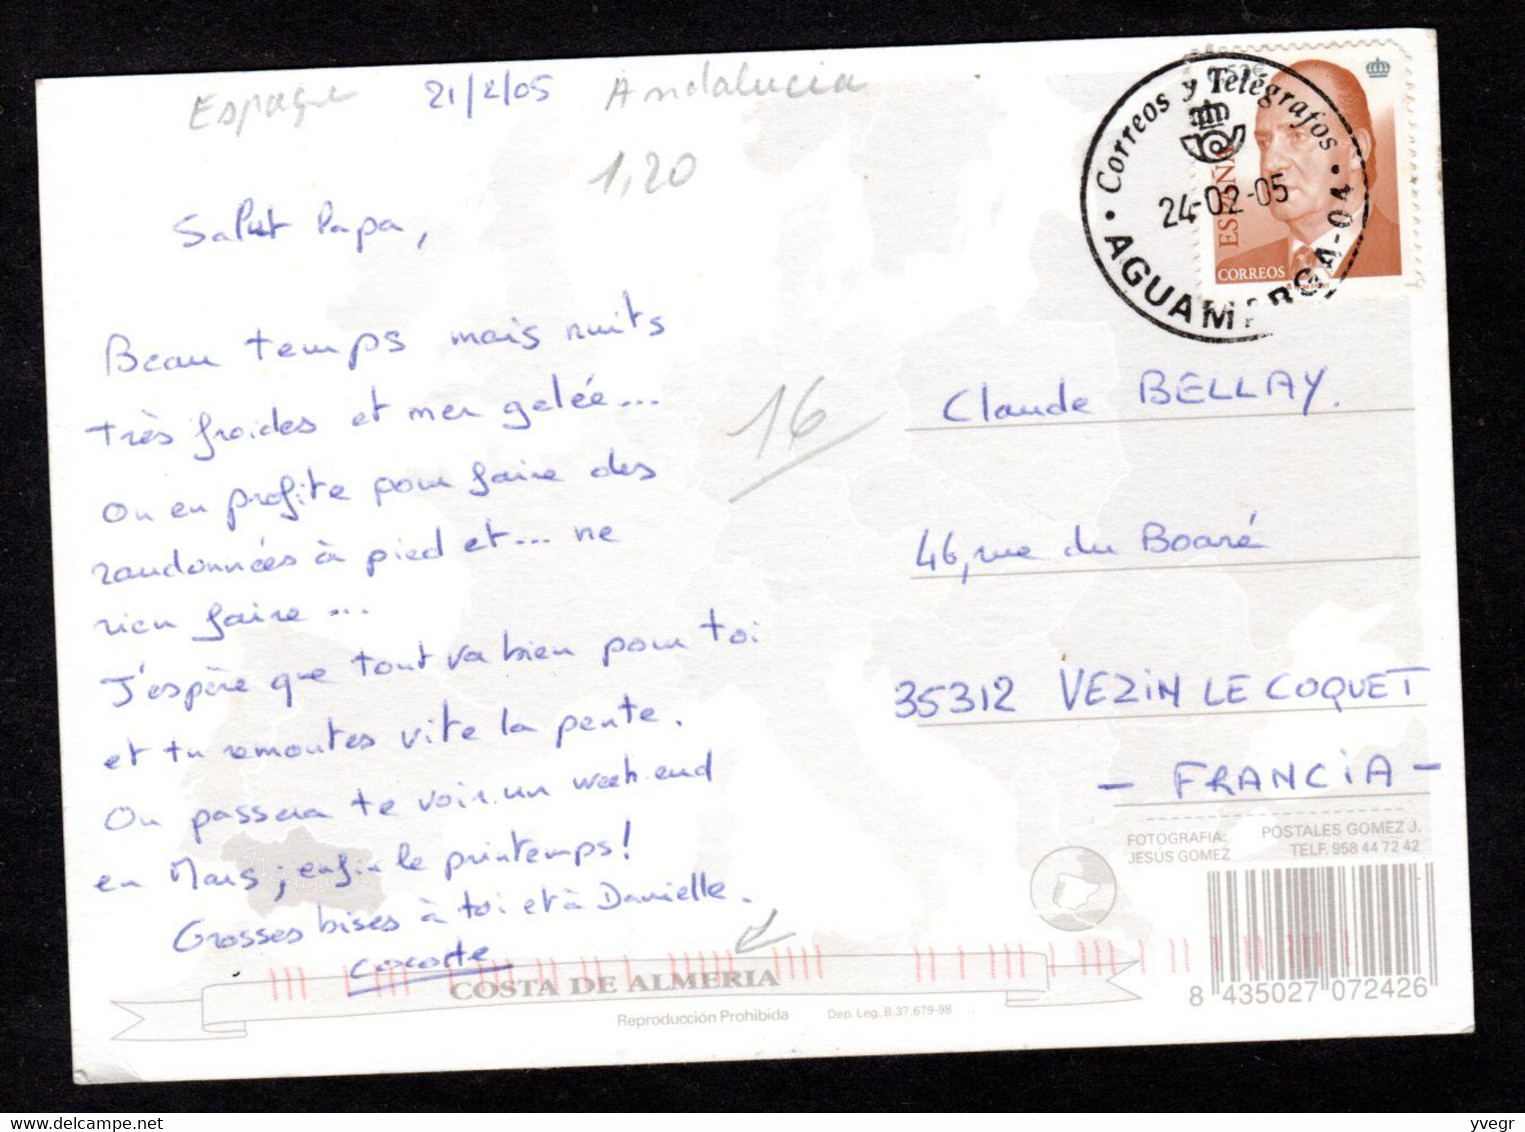 Espagne 21/2/05 Andalucia
1,20
Salut Papa,
Beau temps mais nuits
très froides et mer gelée...
On en profite pour faire des
randonnées à pied et... ne
rien faire...
J'espère que tout va bien pour toi
et tu remontes vite la pente.
On passera te voir un week-end
en Mars; enfin le printemps!
Grosses bises à toi et à Danielle.
Cocotte
16
Correos y Telégrafos
24-02-05
AGUAMARGA-04
ESPAÑA
CORREOS
Claude BELLAY.
46, rue du Boaré
35312 VEZIN LE COQUET
- FRANCIA -
FOTOGRAFIA: JESÚS GOMEZ
POSTALES GOMEZ J.
TELF. 958 44 72 42
8 435027 072426
COSTA DE ALMERIA
Reproducción Prohibida Dep. Leg. B.37.679-98
delcampe.net
yvegr